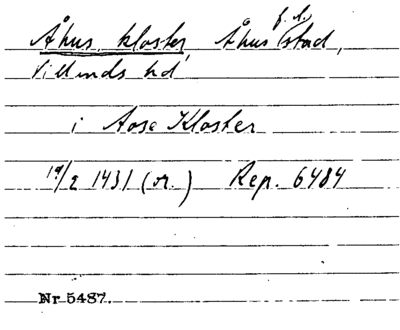 Åhus kloster, Åhus f.d. stad,
Villands hd
i Aose Kloster
19/2 1431 (or.) Rep. 6484
Nr 5487.